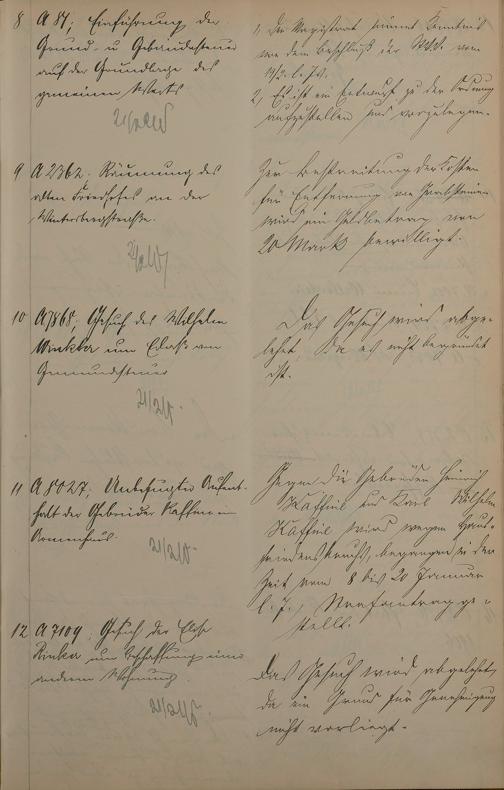 8 A 87; Einführung der
Grund- u Gebäudesteuer
auf der Grundlage des
gemeinen Werts
1, Der Magistrat nimmt Kenntnis
von dem Beschluß der vom
2, Es ist ein Entwurf zu der Ordnung
aufzustellen und vorzulegen.
9 A 2362. Räumung des
alten Friedhofes an der
Winterbergstraße.
Zur Bestreitung der Kosten
für Entfernung von Grabsteinen
wird ein Geldbetrag von
20 Mark bewilligt.
10 A 7868; Gesuch des Wilhelm
um Erlaß von
Gemeindesteuer
Das Gesuch wird abge-
lehnt, da es nicht begründet
ist.
11 A 8027; Unbefugter Aufent-
halt der Gebrüder im
Armenhaus.
Gegen die Gebrüder Heinrich
und Karl Wilhelm
wird wegen Haus-
friedensbruchs, begangen in der
Zeit vom 8 bis 20 Januar
l. J., Strafantrag ge-
stellt.
12 A 7109; Gesuch der
um Beschaffung einer
anderen Wohnung
Das Gesuch wird abgelehnt,
da ein Grund für Genehmigung
nicht vorliegt.